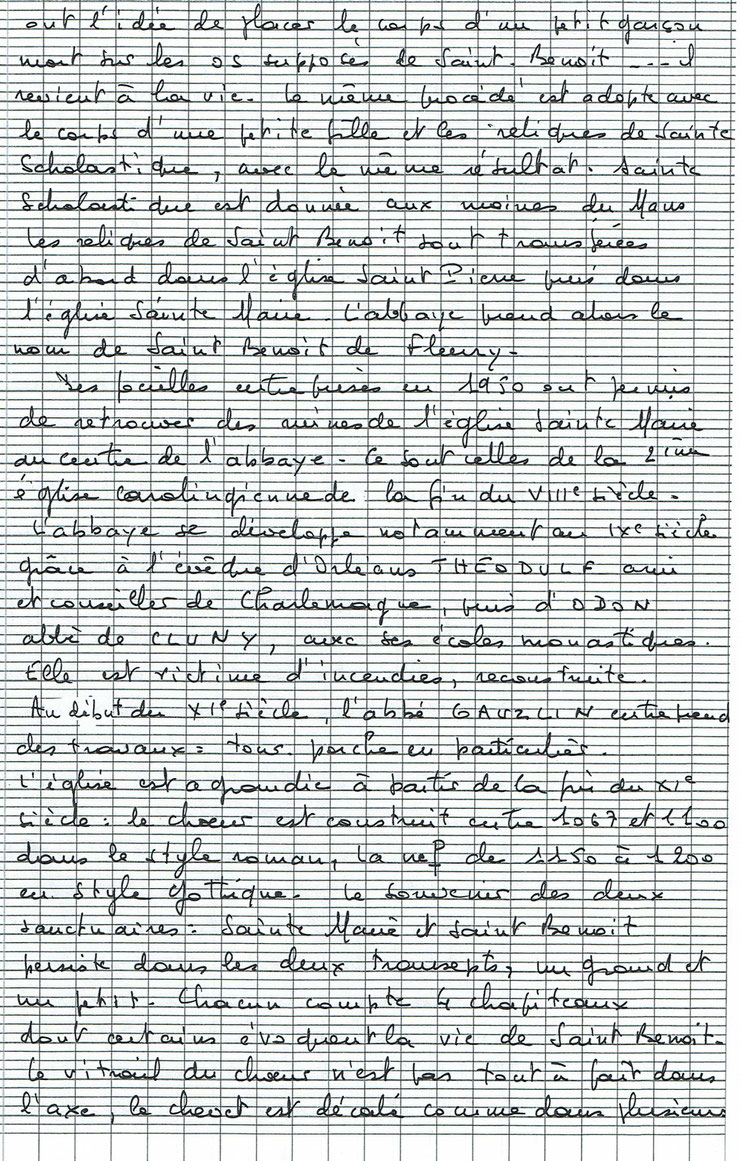 ont l'idée de placer le corps d'un petit garçon
mort sur les os supposés de Saint. Benoit --- il
revient à la vie. Le même procédé est adopté avec
le corps d'une petite fille et les reliques de Sainte
Scholastique, avec le même résultat. Sainte
Scholastique est donnée aux moines du Mans
les reliques de Saint Benoit sont transférées
d'abord dans l'église Saint Pierre puis dans
l'église Sainte Marie. L'abbaye prend alors le
nom de Saint Benoit de Fleury-
Des fouilles entreprises en 1950 ont permis
de retrouver des ruines de l'église Sainte Marie
au centre de l'abbaye - Ce sont celles de la 2ième
église carolingienne de la fin du VIIIe siècle.
L'abbaye se développe notamment au IXe siècle
grâce à l'évêque d'Orléans THÉODULF ami
et conseiller de Charlemagne, puis d'ODON
abbé de CLUNY, avec ses écoles monastiques.
Elle est victime d'incendies, reconstruite.
Au début du XIe siècle, l'abbé GAUZLIN entreprend
des travaux : tour. porche en particulier.
L'église est agrandie à partir de la fin du XIe
siècle : le choeur est construit entre 1067 et 1100
dans le style roman, la nef de 1150 à 1200
en style gothique. Le souvenir des deux
sanctuaires : Sainte Marie et Saint Benoit
persiste dans les deux transepts, un grand et
un petit. Chacun compte 4 chapiteaux
dont certains évoquent la vie de Saint Benoit-
Le vitrail du choeur n'est pas tout à fait dans
l'axe, le chevet est décalé comme dans plusieurs